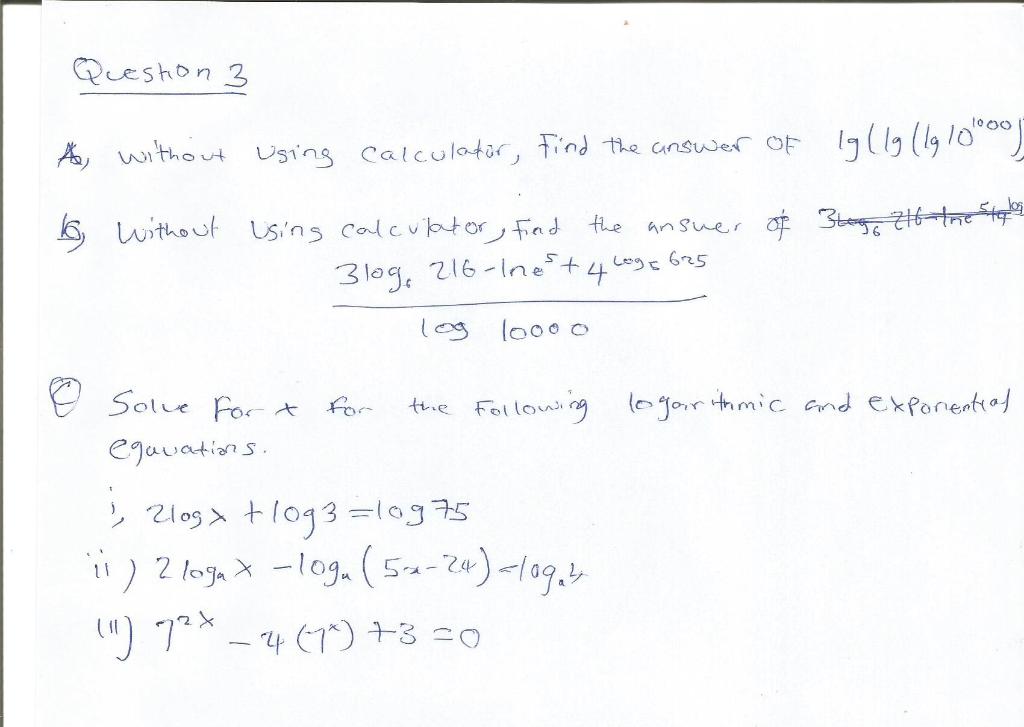 Question 3
A, without using calculator, find the answer of lg(lg(lg10^1000)
B, without using calculator, find the answer of 3log_6 216 - lne^5 + 4^log
3log_6 216 - lne^5 + 4^log_5 625
log 10000
C Solve for x for the following logarithmic and exponential
equuations.
i, 2logx + log3 = log75
ii) 2 log_a x - log_a (5x-24) = log_a 4
(11) 7^2x - 4(7^x) + 3 = 0